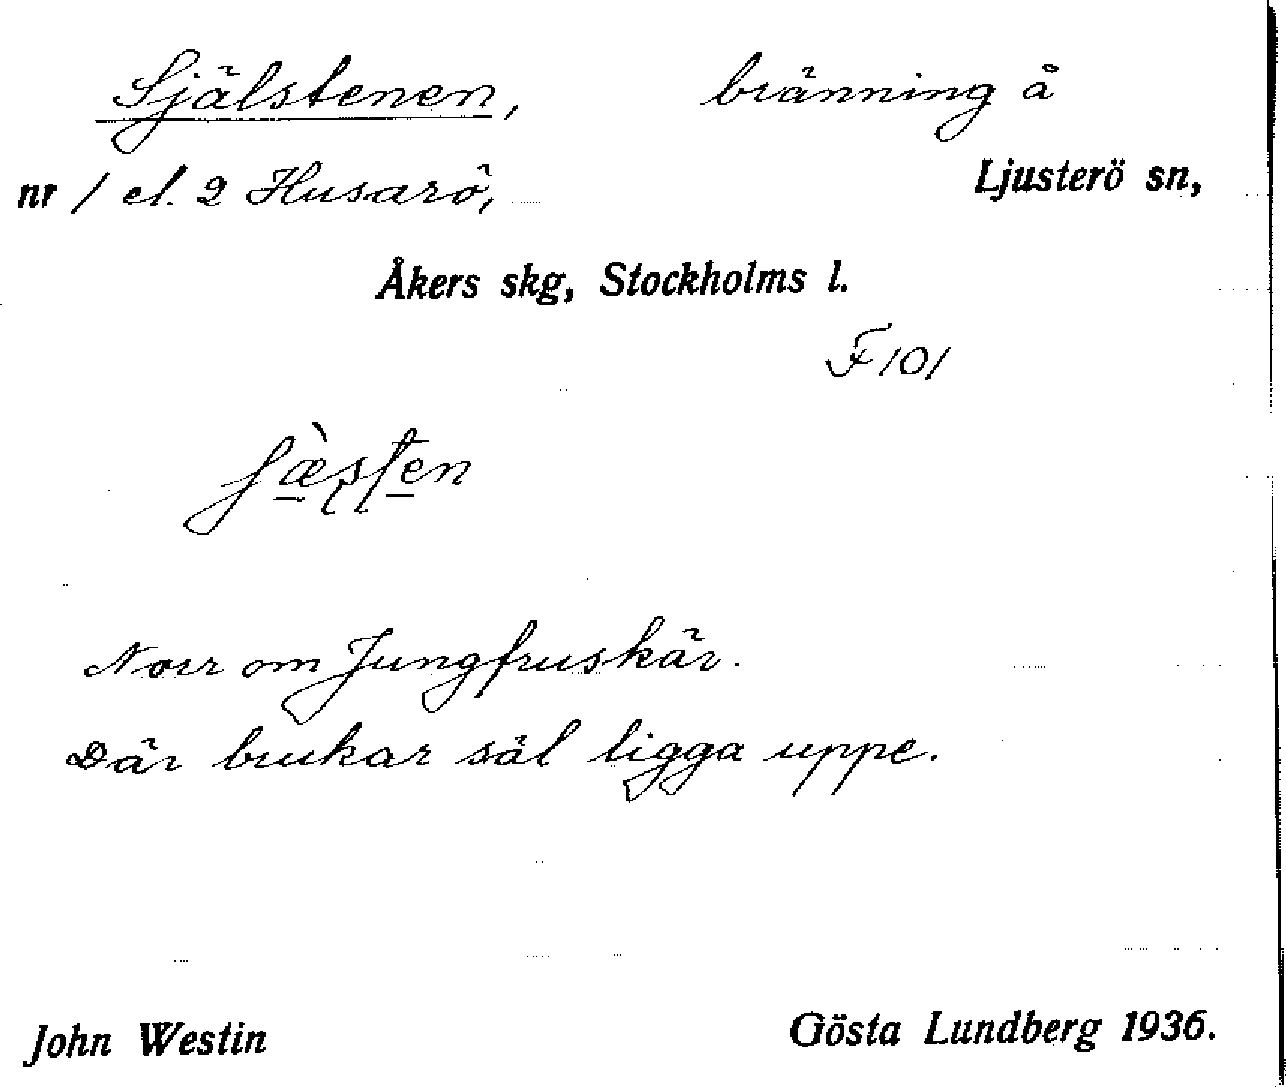 Själstenen, bränning å
nr 1 el. 2 Husarö, Ljusterö sn,
Åkers skg, Stockholms l.
F 101
Norr om Jungfruskär.
Där brukar säl ligga uppe.
John Westin Gösta Lundberg 1936.